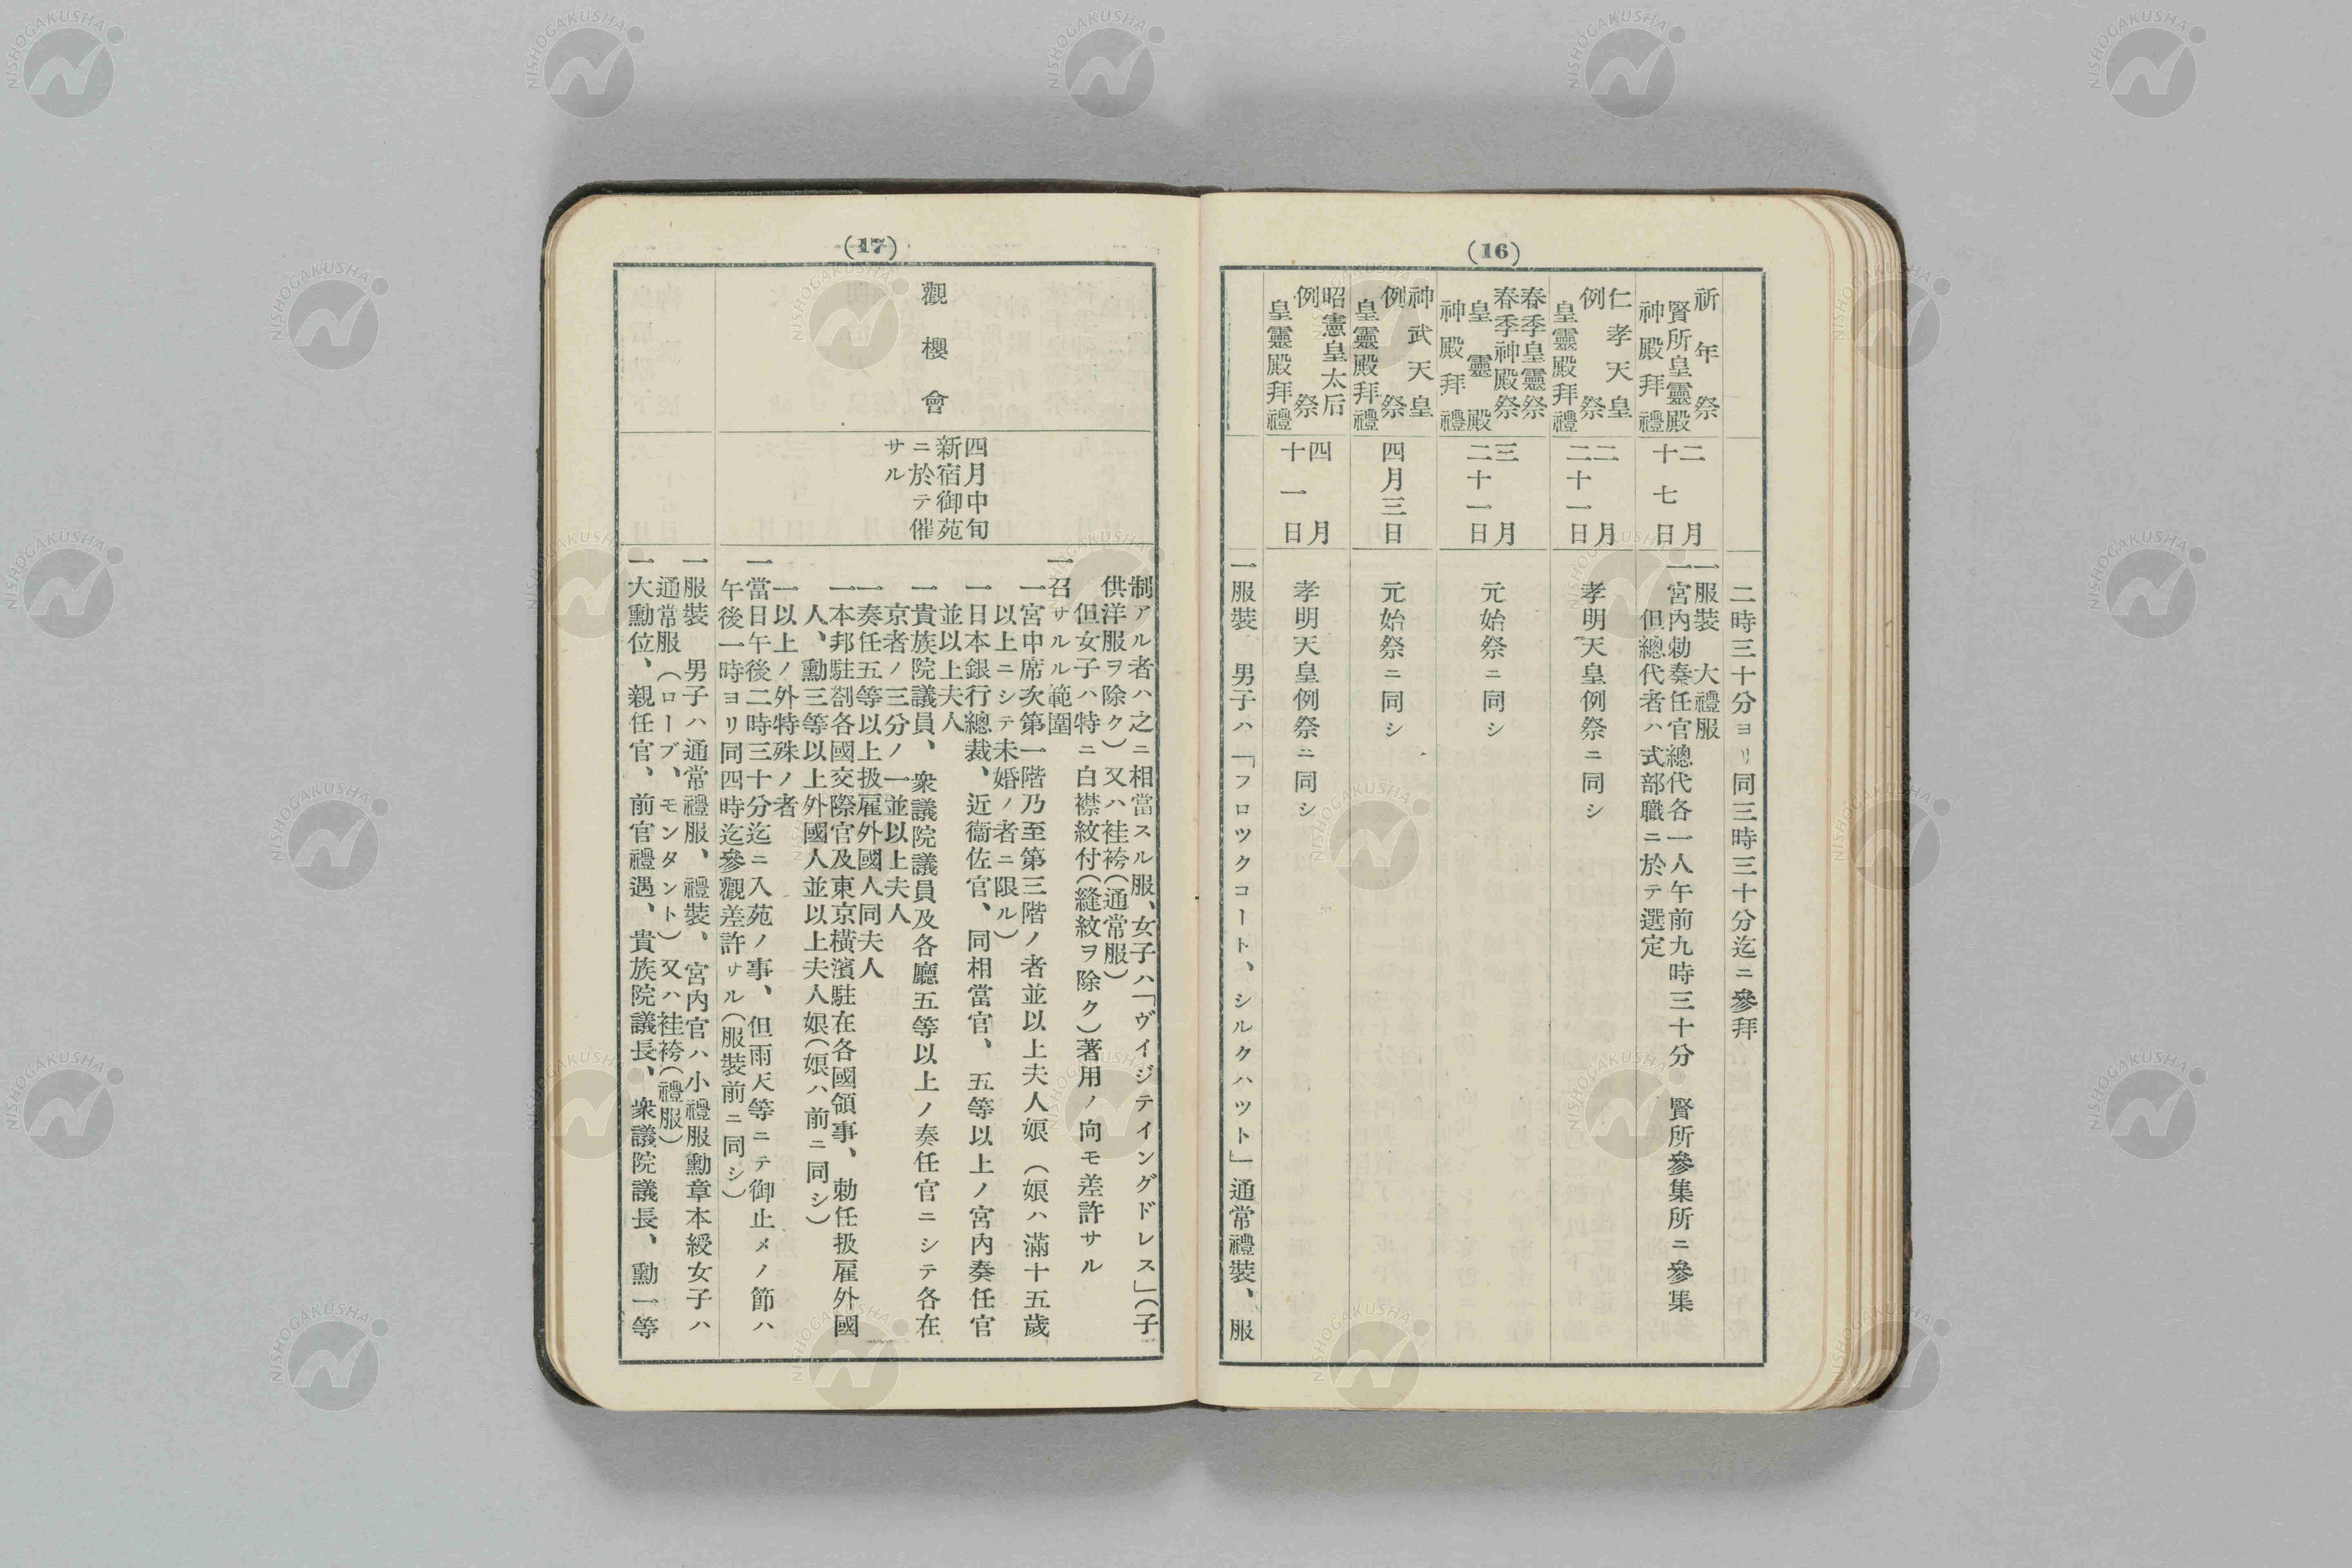 (16)
二時三十分ヨリ同三時三十分迄ニ參拜
祈年祭
賢所皇靈殿
神殿拜禮
二月
十七日
一服裝　大禮服
一宮內勅奏任官總代各一人午前九時三十分　賢所參集所ニ參集
但總代者ハ式部職ニ於テ選定
仁孝天皇
例祭
皇靈殿拜禮
二月
二十一日
孝明天皇例祭ニ同シ
春季皇靈祭
春季神殿祭
皇靈殿
神殿拜禮
三月
二十一日
元始祭ニ同シ
神武天皇
例祭
皇靈殿拜禮
四月三日
元始祭ニ同シ
昭憲皇太后
例祭
皇靈殿拜禮
四月
十一日
孝明天皇例祭ニ同シ
一服裝　男子ハ「フロツクコート、シルクハツト」通常禮裝、服
(17)
觀櫻會
四月中旬
新宿御苑
ニ於テ催
サル
制アル者ハ之ニ相當スル服、女子ハ「ヴイジテイングドレス」（子
供洋服ヲ除ク）又ハ袿袴（通常服）
但女子ハ特ニ白襟紋付（縫紋ヲ除ク）著用ノ向モ差許サル
一召サルル範圍
一宮中席次第一階乃至第三階ノ者並以上夫人娘（娘ハ滿十五歲
以上ニシテ未婚ノ者ニ限ル）
一日本銀行總裁、近衞佐官、同相當官、五等以上ノ宮內奏任官
並以上夫人
一貴族院議員、衆議院議員及各廳五等以上ノ奏任官ニシテ各在
京者ノ三分ノ一並以上夫人
一奏任五等以上扱雇外國人同夫人
一本邦駐劄各國交際官及東京橫濱駐在各國領事、勅任扱雇外國
人、勳三等以上外國人並以上夫人娘（娘ハ前ニ同シ）
一以上ノ外特殊ノ者
一當日午後二時三十分迄ニ入苑ノ事、但雨天等ニテ御止メノ節ハ
午後一時ヨリ同四時迄參觀差許サル（服裝前ニ同シ）
一服裝　男子ハ通常禮服、禮裝、宮內官ハ小禮服勳章本綬女子ハ
通常服（ローブ、モンタント）又ハ袿袴（禮服）
一大勳位、親任官、前官禮遇、貴族院議長、衆議院議長、勳一等